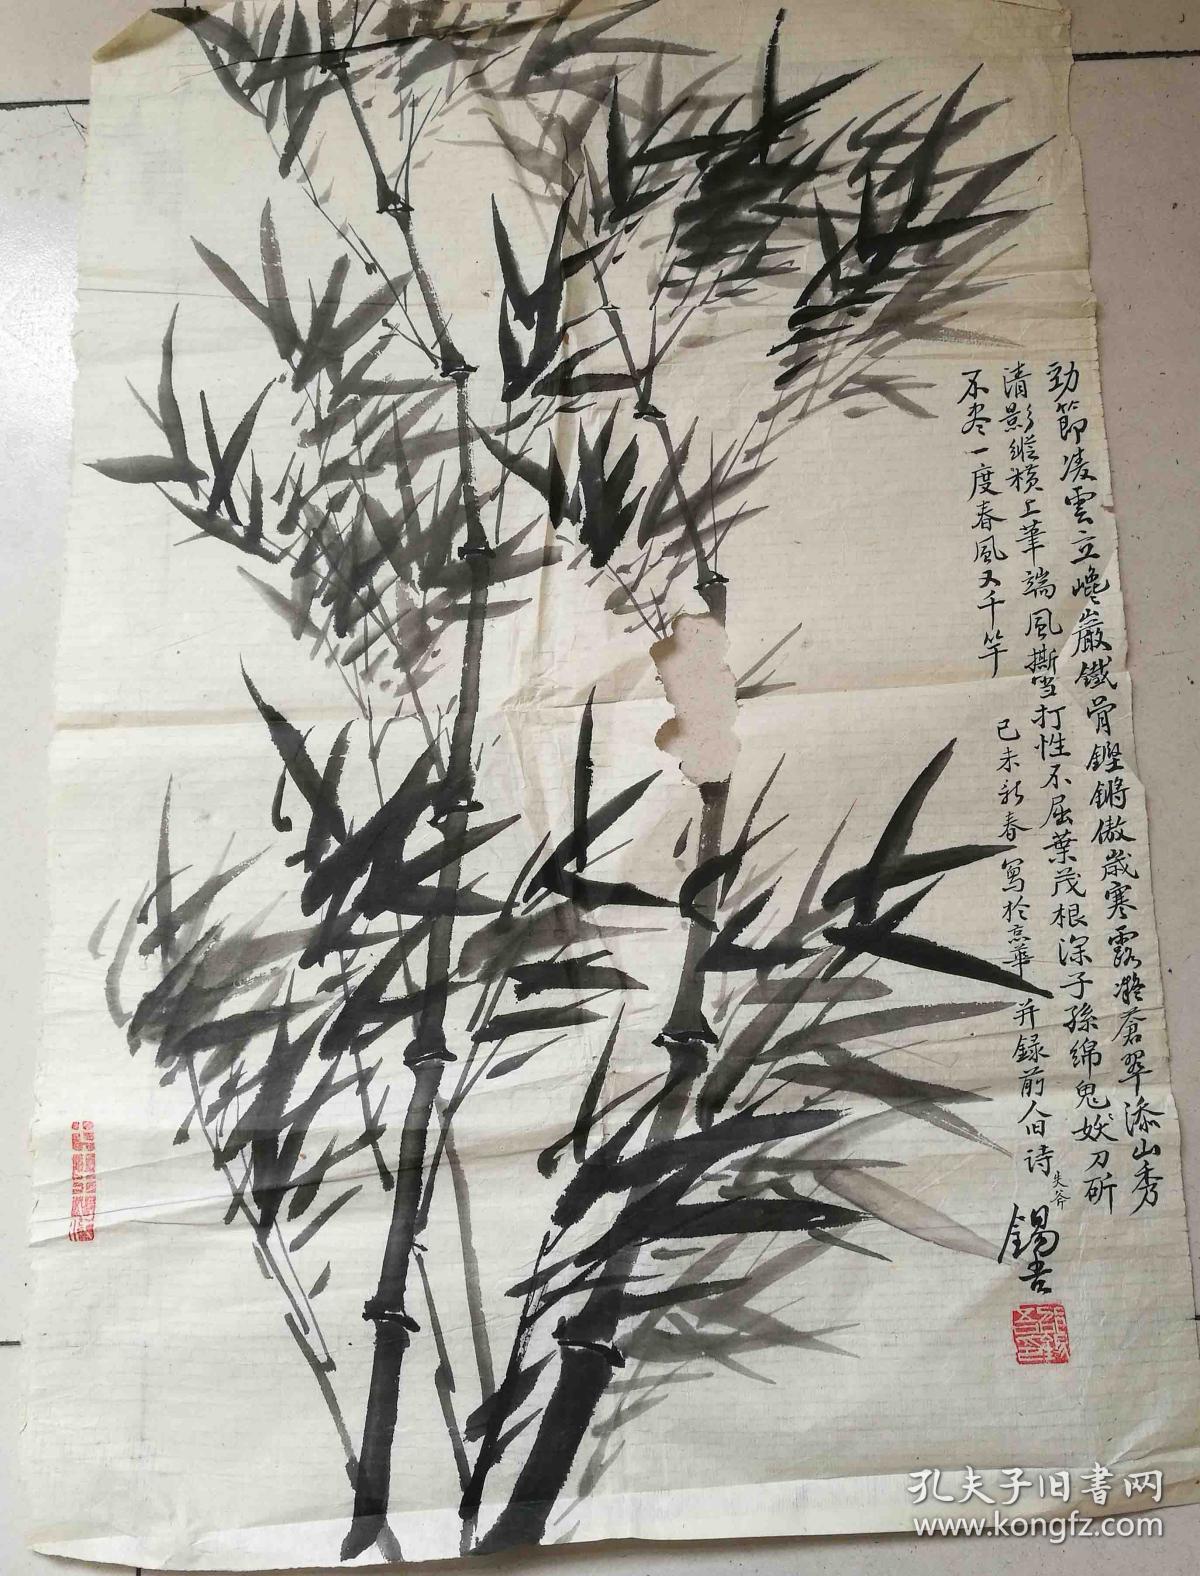 劲節凌雲立巉巖鐵骨鏗鏘傲歲寒露凝蒼翠添山秀
清影縱橫上筆端風撕雪打性不屈葉茂根深子孫綿鬼妖刀斫
不尽一度春風又千竿
己未新春寫於京華并録前人旧诗
失斧
錫吾
孔夫子旧书网
www.kongfz.com